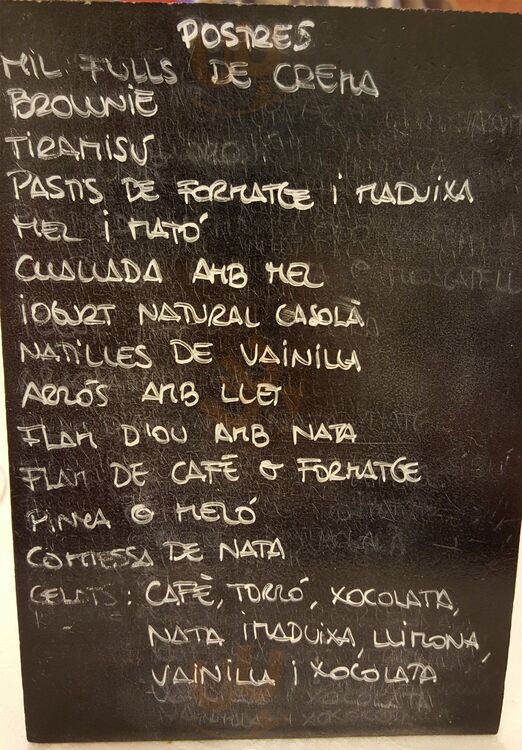 POSTRES
MIL FULLS DE CREMA
BROWNIE
TIRAMISÚ
PASTIS DE FORMATGE i MADUIXA
MEL i MATÓ
CUALLADA AMB MEL
iOGURT NATURAL CASOLÀ
NATILLES DE VAINILLA
ARRÓS AMB LLET
FLAM D'OU AMB NATA
FLAM DE CAFÈ o FORMATGE
PINYA o MELÓ
COMTESSA DE NATA
GELATS: CAFÈ, TORRÓ, XOCOLATA,
NATA i MADUIXA, LLIMONA,
VAINILLA i XOCOLATA